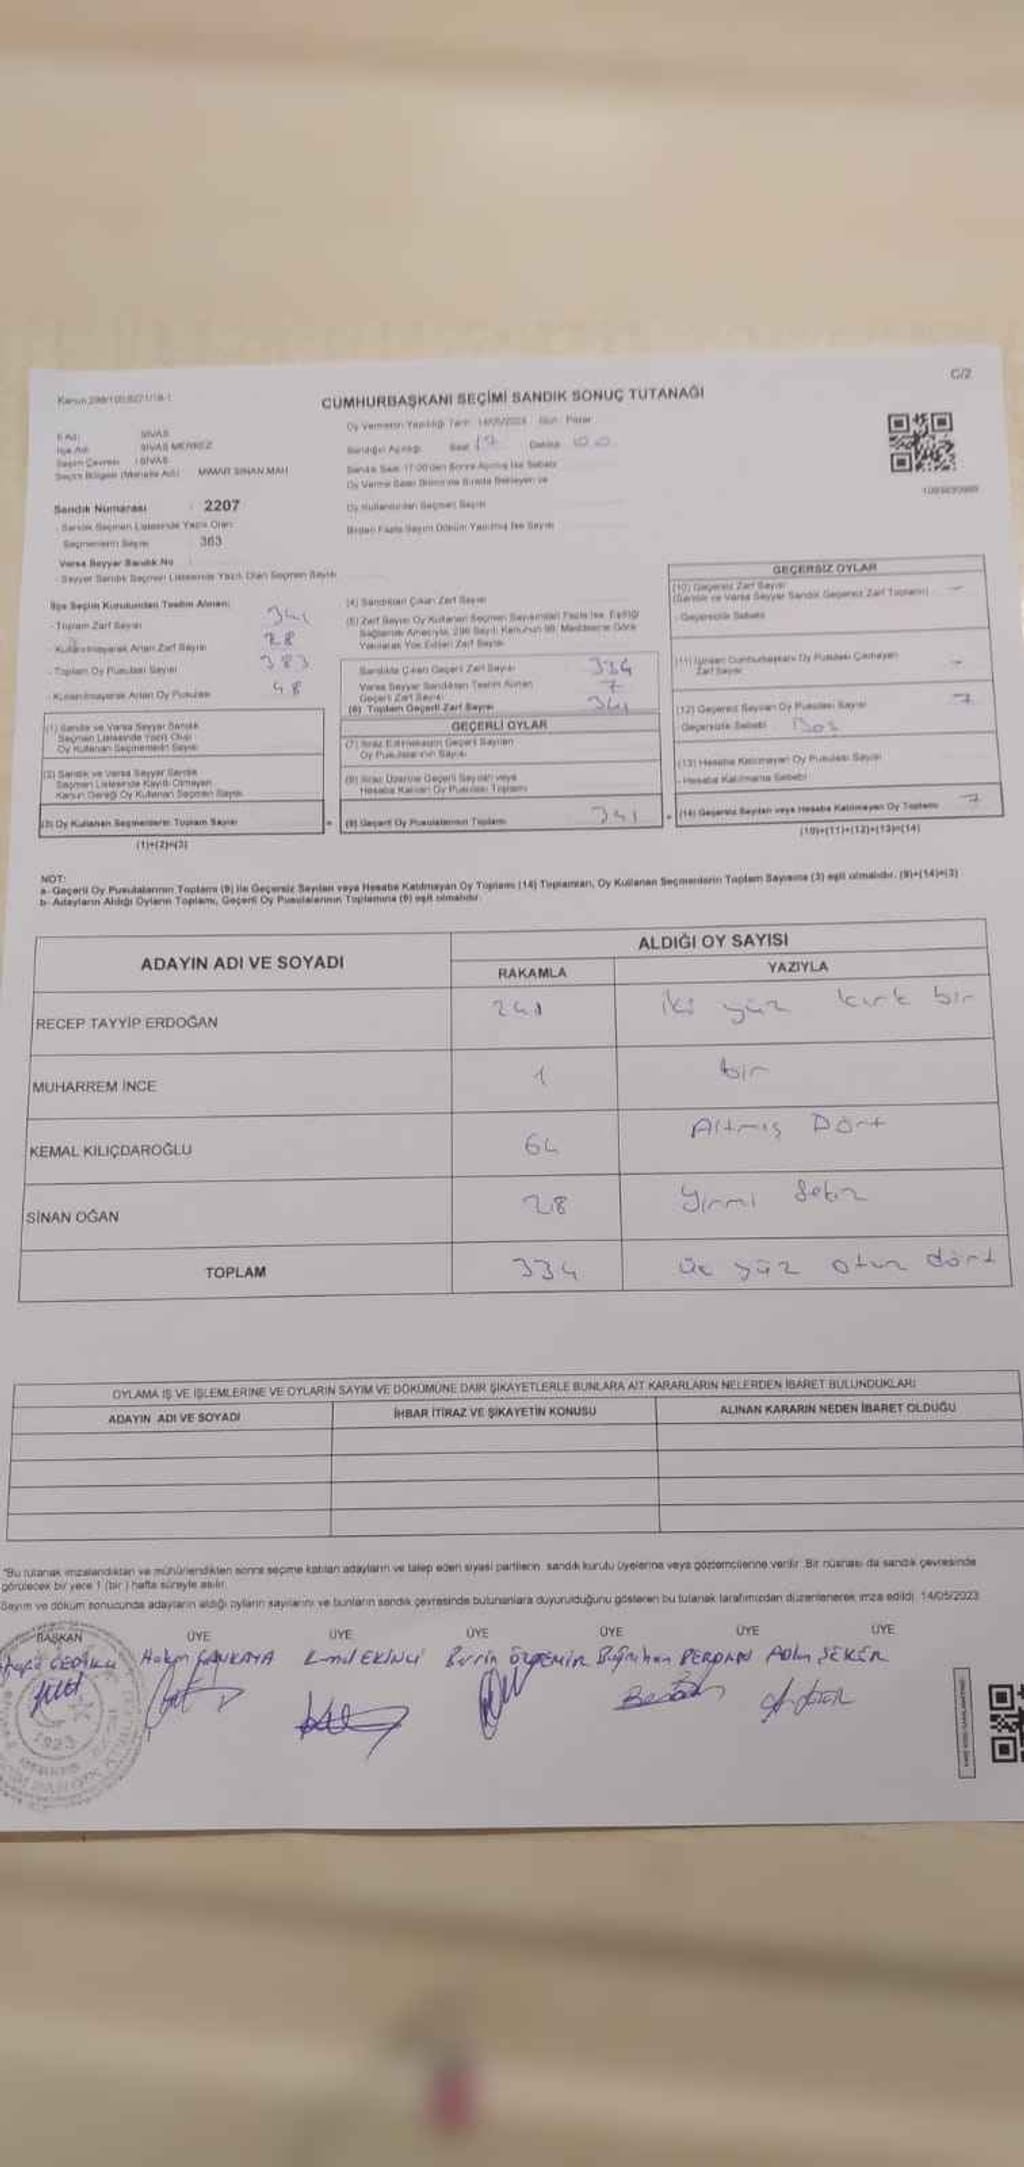 C/2
CUMHURBAŞKANI SEÇİMİ SANDIK SONUÇ TUTANAĞI
Oy Vermenin Yapıldığı Tarih: 14/05/2023 Gün: Pazar
İl Adı: SİVAS
İlçe Adı: SİVAS MERKEZ
Seçim Çevresi: SİVAS
Seçim Bölgesi (Mahalle Adı): MİMAR SİNAN MAH
Sandığın Açıldığı Saat 17 Dakika 00
Sandık Saat 17:00'den Sonra Açılmış İse Sebebi
Oy Verme Saati Bitiminde Sırada Bekleyen ve
Oy Kullandırılan Seçmen Sayısı
Birden Fazla Sayım Döküm Yapılmış İse Sayısı
Sandık Numarası : 2207
- Sandık Seçmen Listesinde Yazılı Olan
Seçmenlerin Sayısı 363
Varsa Seyyar Sandık No
- Seyyar Sandık Seçmen Listesinde Yazılı Olan Seçmen Sayısı
İlçe Seçim Kurulundan Teslim Alınan:
- Toplam Zarf Sayısı
- Kullanılmayarak Artan Zarf Sayısı 28
- Toplam Oy Pusulası Sayısı 383
- Kullanılmayarak Artan Oy Pusulası 48
(1) Sandık ve Varsa Seyyar Sandık
Seçmen Listesinde Yazılı Olup
Oy Kullanan Seçmenlerin Sayısı
(2) Sandık ve Varsa Seyyar Sandık
Seçmen Listesinde Kayıtlı Olmayan
Kanun Gereği Oy Kullanan Seçmen Sayısı
(3) Oy Kullanan Seçmenlerin Toplam Sayısı
(1)+(2)=(3)
(4) Sandıktan Çıkan Zarf Sayısı
(5) Zarf Sayısı Oy Kullanan Seçmen Sayısından Fazla İse, Eşitliği
Sağlamak Amacıyla, 298 Sayılı Kanunun 98. Maddesine Göre
Yakılarak Yok Edilen Zarf Sayısı
Sandıkta Çıkan Geçerli Zarf Sayısı 334
Varsa Seyyar Sandıktan Teslim Alınan
Geçerli Zarf Sayısı 7
(6) Toplam Geçerli Zarf Sayısı 341
GEÇERLİ OYLAR
(7) İtiraz Edilmeksizin Geçerli Sayılan
Oy Pusulalarının Sayısı
(8) İtiraz Üzerine Geçerli Sayılan veya
Hesaba Katılan Oy Pusulası Toplamı
(9) Geçerli Oy Pusulalarının Toplamı 341
GEÇERSİZ OYLAR
(10) Geçersiz Zarf Sayısı -
(Sandık ve Varsa Seyyar Sandık Geçersiz Zarf Toplamı)
- Geçersizlik Sebebi
(11) İçinden Cumhurbaşkanı Oy Pusulası Çıkmayan
Zarf Sayısı -
(12) Geçersiz Sayılan Oy Pusulası Sayısı 7
Geçersizlik Sebebi Boş
(13) Hesaba Katılmayan Oy Pusulası Sayısı
- Hesaba Katılmama Sebebi
(14) Geçersiz Sayılan veya Hesaba Katılmayan Oy Toplamı 7
(10)+(11)+(12)+(13)=(14)
NOT:
a- Geçerli Oy Pusulalarının Toplamı (9) ile Geçersiz Sayılan veya Hesaba Katılmayan Oy Toplamı (14) Toplamları, Oy Kullanan Seçmenlerin Toplam Sayısına (3) eşit olmalıdır. (9)+(14)=(3)
b- Adayların Aldığı Oyların Toplamı, Geçerli Oy Pusulalarının Toplamına (9) eşit olmalıdır.
ADAYIN ADI VE SOYADI ALDIĞI OY SAYISI
RAKAMLA YAZIYLA
RECEP TAYYİP ERDOĞAN 241 iki yüz kırk bir
MUHARREM İNCE 1 bir
KEMAL KILIÇDAROĞLU 64 Altmış Dört
SİNAN OĞAN 28 Yirmi Sekiz
TOPLAM 334 üç yüz otuz dört
OYLAMA İŞ VE İŞLEMLERİNE VE OYLARIN SAYIM VE DÖKÜMÜNE DAİR ŞİKAYETLERLE BUNLARA AİT KARARLARIN NELERDEN İBARET BULUNDUKLARI
ADAYIN ADI VE SOYADI İHBAR İTİRAZ VE ŞİKAYETİN KONUSU ALINAN KARARIN NEDEN İBARET OLDUĞU
"Bu tutanak imzalandıktan ve mühürlendikten sonra seçime katılan adayların ve talep eden siyasi partilerin, sandık kurulu üyelerine veya gözlemcilerine verilir. Bir nüshası da sandık çevresinde
görülecek bir yere 1 (bir) hafta süreyle asılır.
Sayım ve döküm sonucunda adayların aldığı oyların sayılarını ve bunların sandık çevresinde bulunanlara duyurulduğunu gösteren bu tutanak tarafımızdan düzenlenerek imza edildi. 14/05/2023
BAŞKAN ÜYE ÜYE ÜYE ÜYE ÜYE ÜYE
Hakan ÇANKAYA EKİNCİ ÖZDEMİR ŞEKER
1923